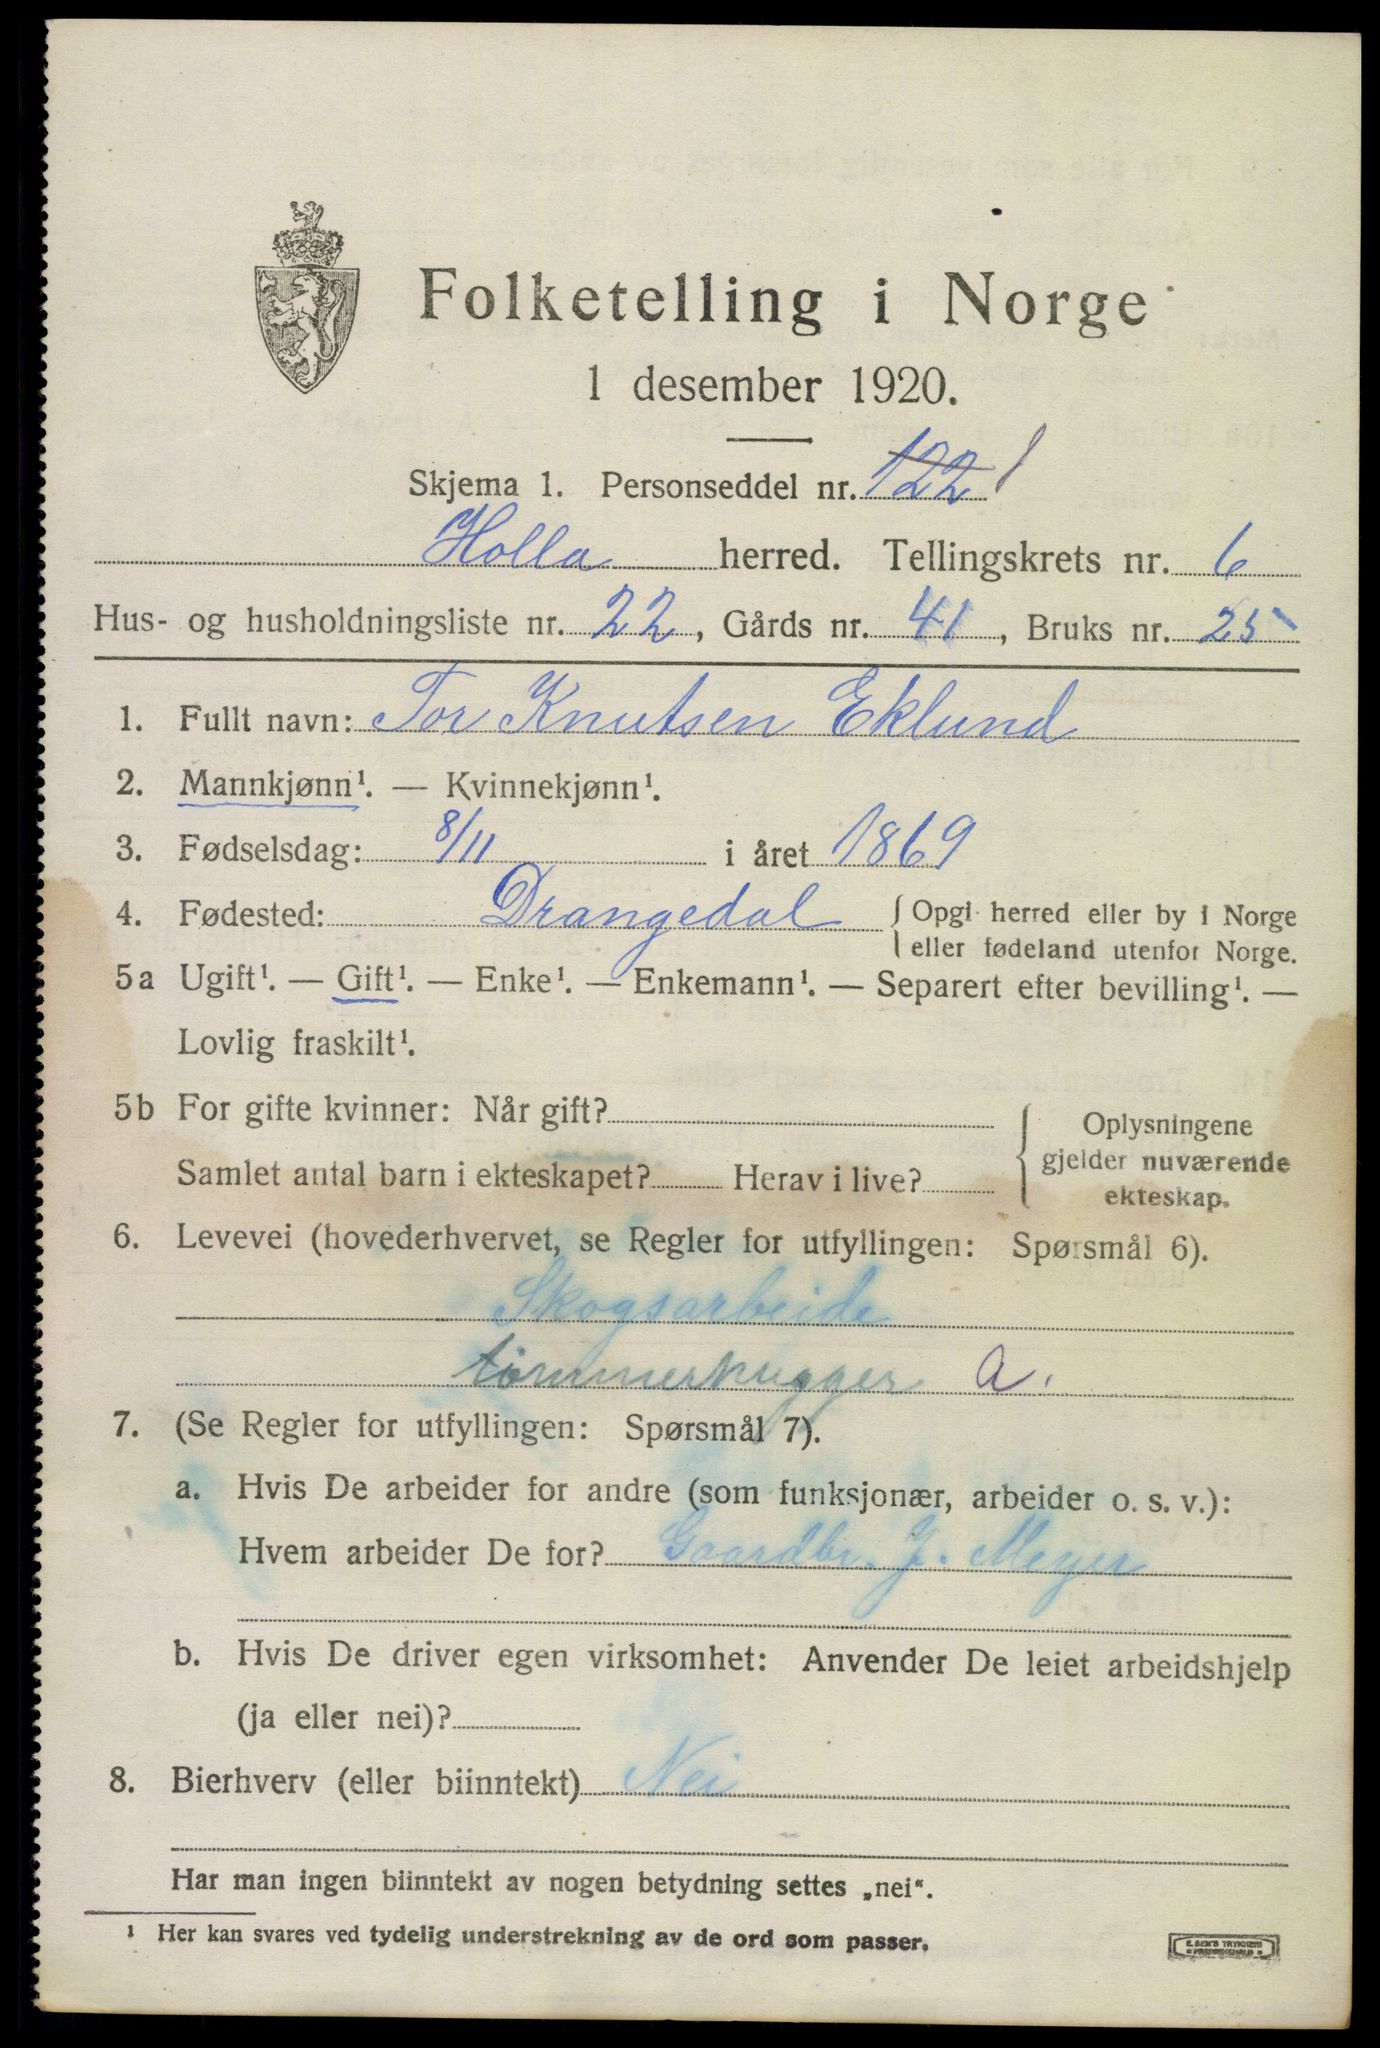 Folketelling i Norge
1 desember 1920.
Skjema 1. Personseddel nr. 122 1
Holla herred. Tellingskrets nr. 6
Hus- og husholdningsliste nr. 22, Gårds nr. 41, Bruks nr. 25
1. Fullt navn: Tor Knutsen Eklund
2. Mannkjønn¹. — Kvinnekjønn¹.
3. Fødselsdag: 8/11 i året 1869
4. Fødested: Drangedal { Opgi herred eller by i Norge
eller fødeland utenfor Norge.
5a Ugift¹. — Gift¹. — Enke¹. — Enkemann¹. — Separert efter bevilling¹. —
Lovlig fraskilt¹.
5b For gifte kvinner: Når gift? { Oplysningene
gjelder nuværende
Samlet antal barn i ekteskapet? Herav i live?
ekteskap.
6. Levevei (hovederhvervet, se Regler for utfyllingen: Spørsmål 6).
Skogsarbeide
tømmerhugger a.
7. (Se Regler for utfyllingen: Spørsmål 7).
a. Hvis De arbeider for andre (som funksjonær, arbeider o. s. v.):
Hvem arbeider De for? Gaardbr. J. Meyer
b. Hvis De driver egen virksomhet: Anvender De leiet arbeidshjelp
(ja eller nei)?
8. Bierhverv (eller biinntekt) Nei
Har man ingen biinntekt av nogen betydning settes „nei“.
¹ Her kan svares ved tydelig understrekning av de ord som passer.
E. SEM'S TRYKKERI
FREDRIKSHALD